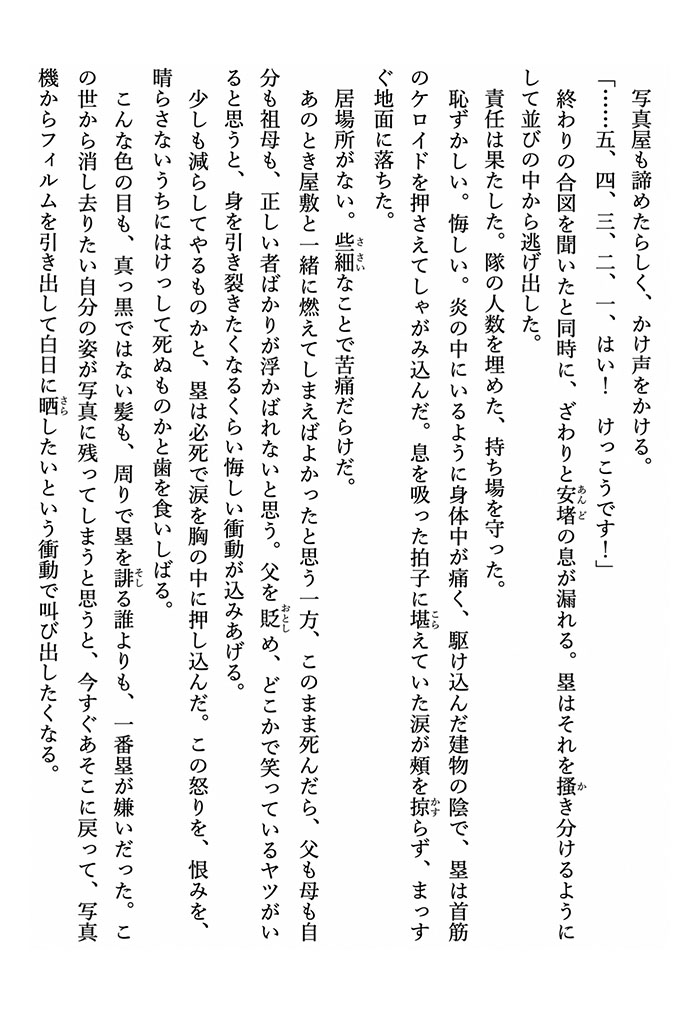 写真屋も諦めたらしく、かけ声をかける。
「……五、四、三、二、一、はい！　けっこうです！」
終わりの合図を聞いたと同時に、ざわりと安堵の息が漏れる。塁はそれを掻き分けるように
して並びの中から逃げ出した。
責任は果たした。隊の人数を埋めた、持ち場を守った。
恥ずかしい。悔しい。炎の中にいるように身体中が痛く、駆け込んだ建物の陰で、塁は首筋
のケロイドを押さえてしゃがみ込んだ。息を吸った拍子に堪えていた涙が頰を掠らず、まっす
ぐ地面に落ちた。
居場所がない。些細なことで苦痛だらけだ。
あのとき屋敷と一緒に燃えてしまえばよかったと思う一方、このまま死んだら、父も母も自
分も祖母も、正しい者ばかりが浮かばれないと思う。父を貶め、どこかで笑っているヤツがい
ると思うと、身を引き裂きたくなるくらい悔しい衝動が込みあげる。
少しも減らしてやるものかと、塁は必死で涙を胸の中に押し込んだ。この怒りを、恨みを、
晴らさないうちにはけっして死ぬものかと歯を食いしばる。
こんな色の目も、真っ黒ではない髪も、周りで塁を誹る誰よりも、一番塁が嫌いだった。こ
の世から消し去りたい自分の姿が写真に残ってしまうと思うと、今すぐあそこに戻って、写真
機からフィルムを引き出して白日に晒したいという衝動で叫び出したくなる。